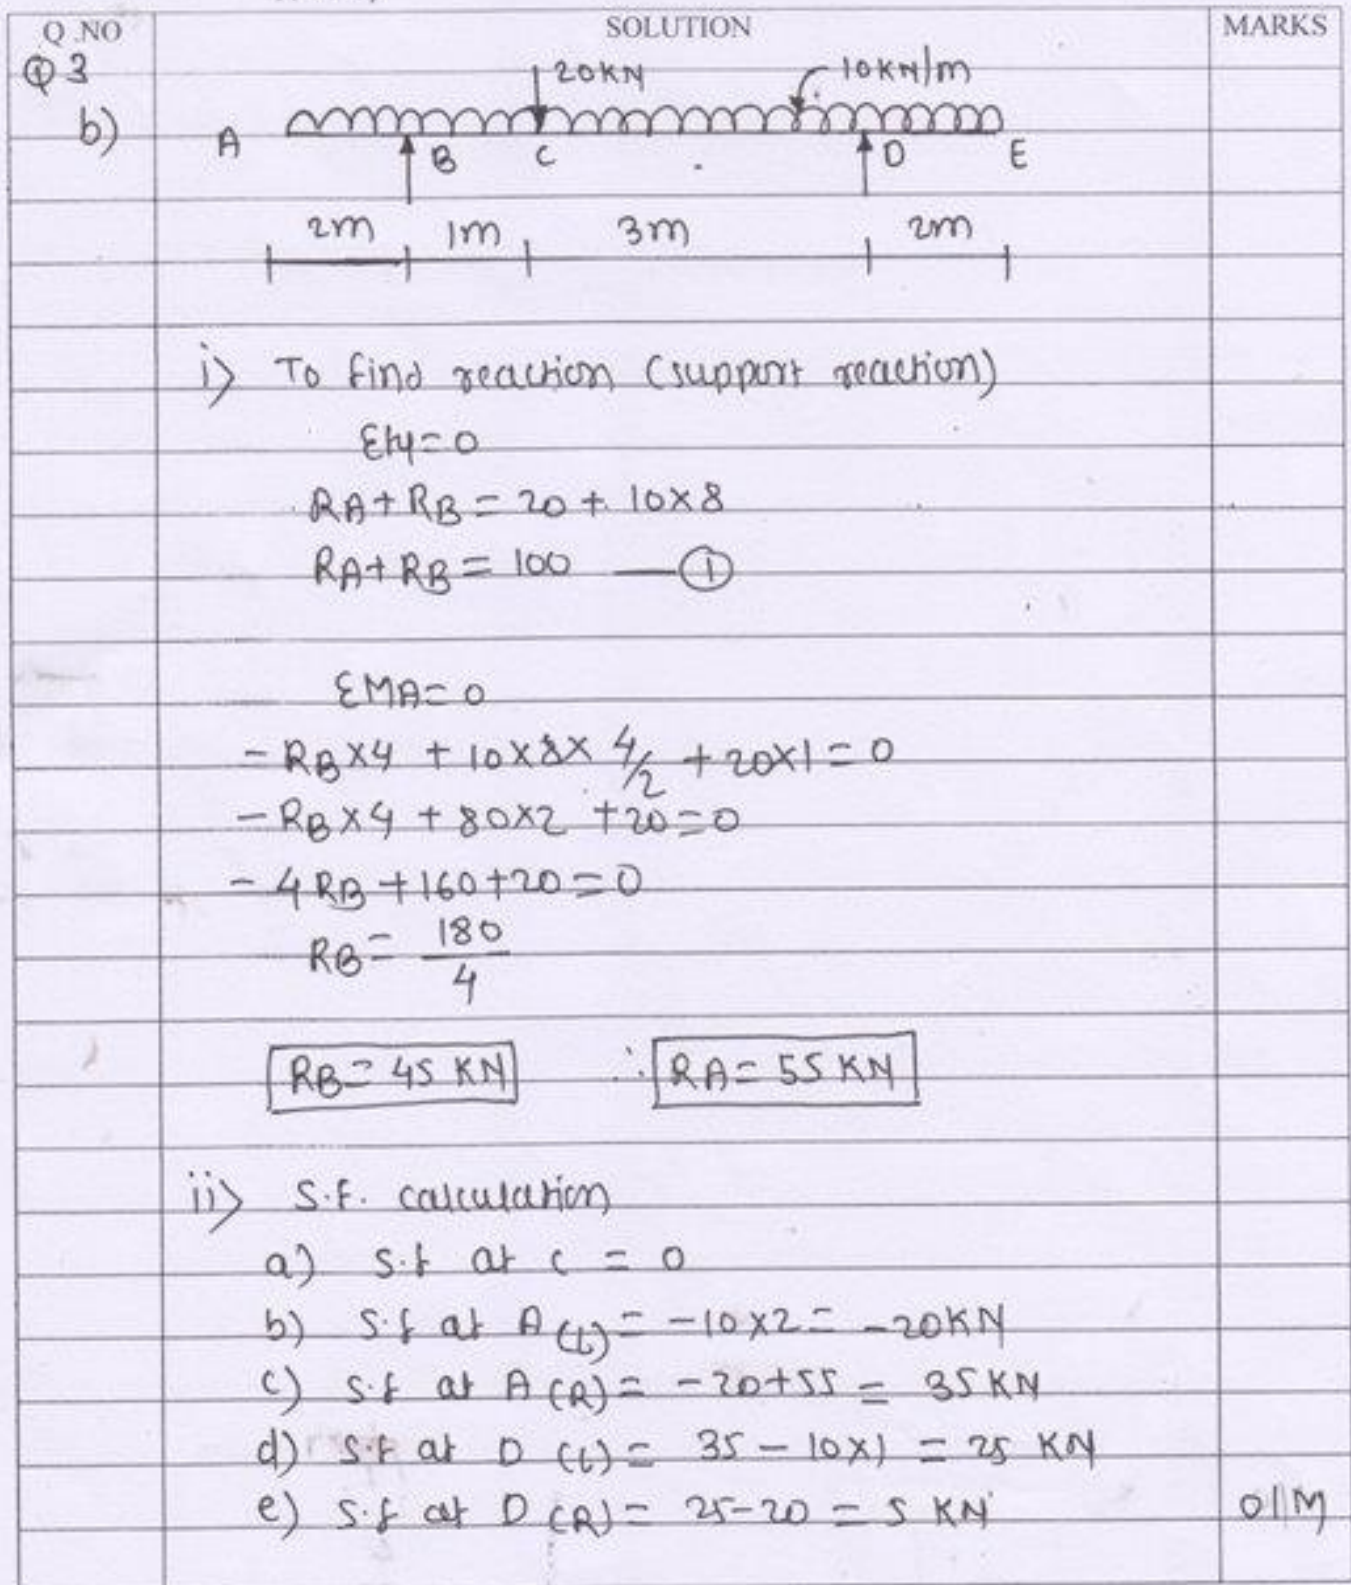 Q.NO SOLUTION MARKS
Q3
b)
20KN 10KN/m
A B C D E
2m 1m 3m 2m
i> To find reaction (support reaction)
Σfy=0
RA+RB = 20 + 10×8
RA+RB = 100 — ①
ΣMA=0
-RB×4 + 10×8×4/2 + 20×1=0
-RB×4 + 80×2 +20=0
-4RB+160+20=0
RB= 180/4
RB= 45 KN ∴ RA= 55 KN
ii> S.F. calculation
a) S.f at C = 0
b) S.f at A(L)= -10×2= -20KN
c) S.f at A(R)= -20+55 = 35KN
d) S.f at D (L)= 35-10×1 = 25 KN
e) S.f at D (R)= 25-20 = 5 KN 01M